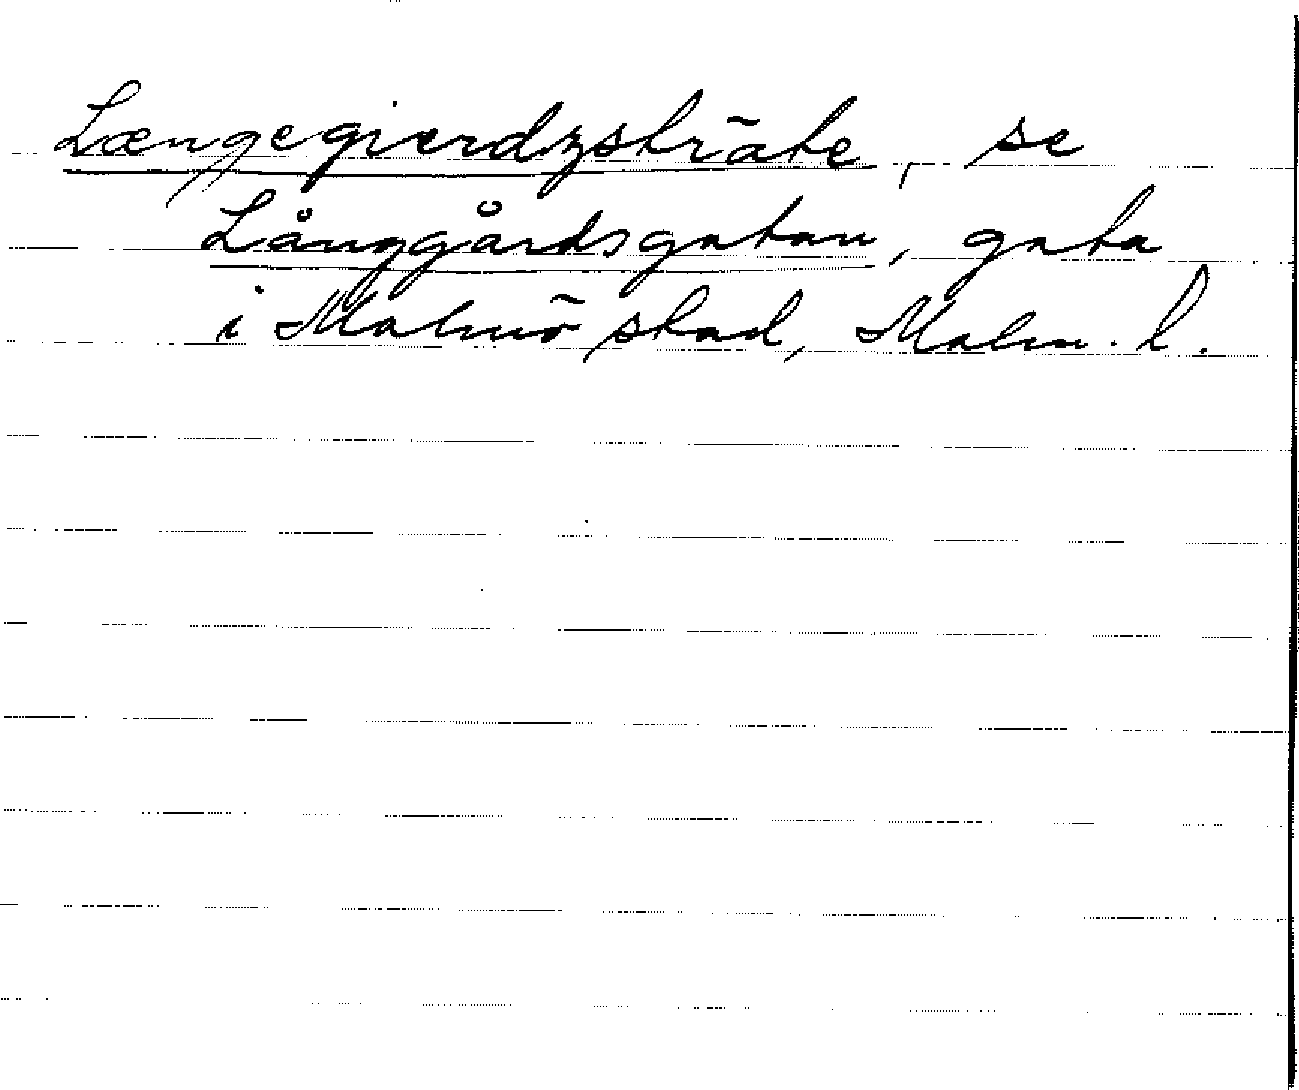 Længegierdzsträte, se
Långgårdsgatan, gata
i Malmö stad, Malm. l.